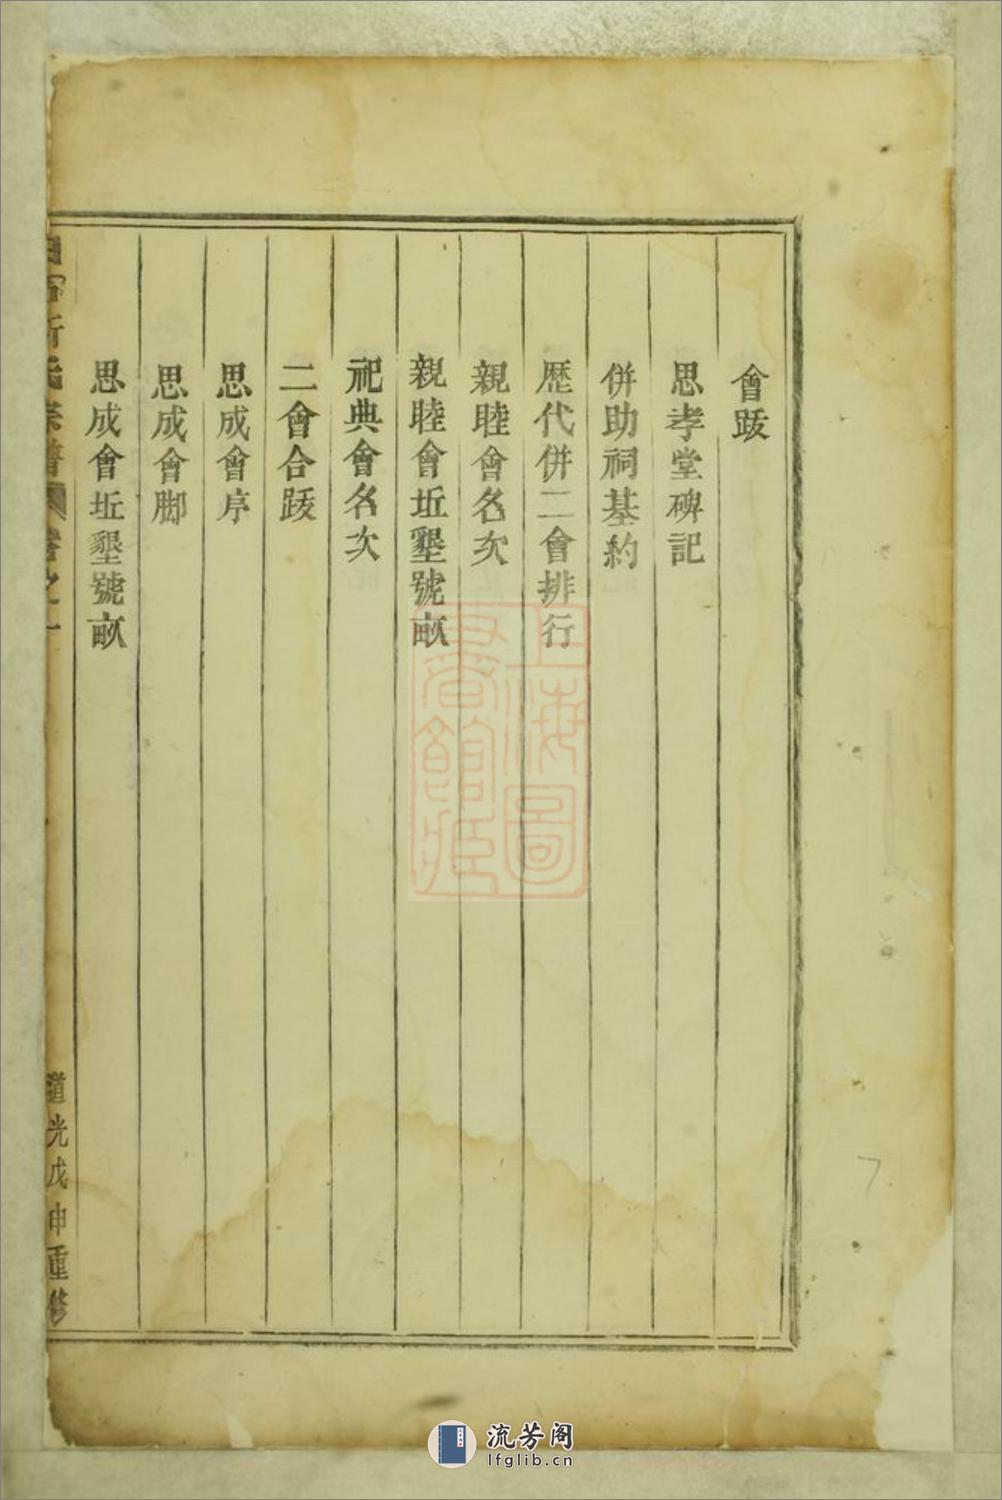 會䟦
思孝堂碑記
併助祠基約
歷代併二會排行
親睦會名次
親睦會坵墾號畝
祀典會名次
二會合䟦
思成會序
思成會脚
思成會坵墾號畝
氏宗譜 卷之一
道光戊申重修
上海圖書館藏
流芳阁
lfglib.cn